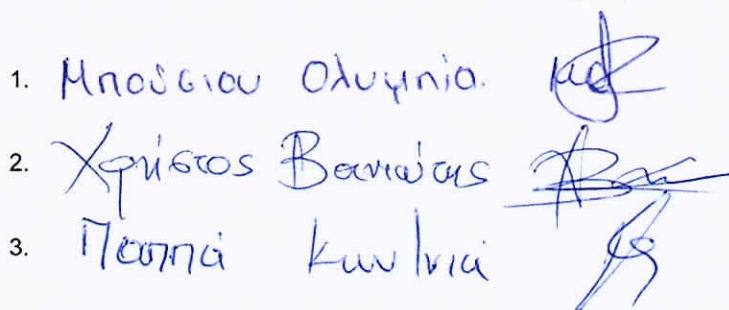 1. Μπούσιου Ολυμπία
2. Χρήστος Βανιώτης
3. Παππά Κων/νιά